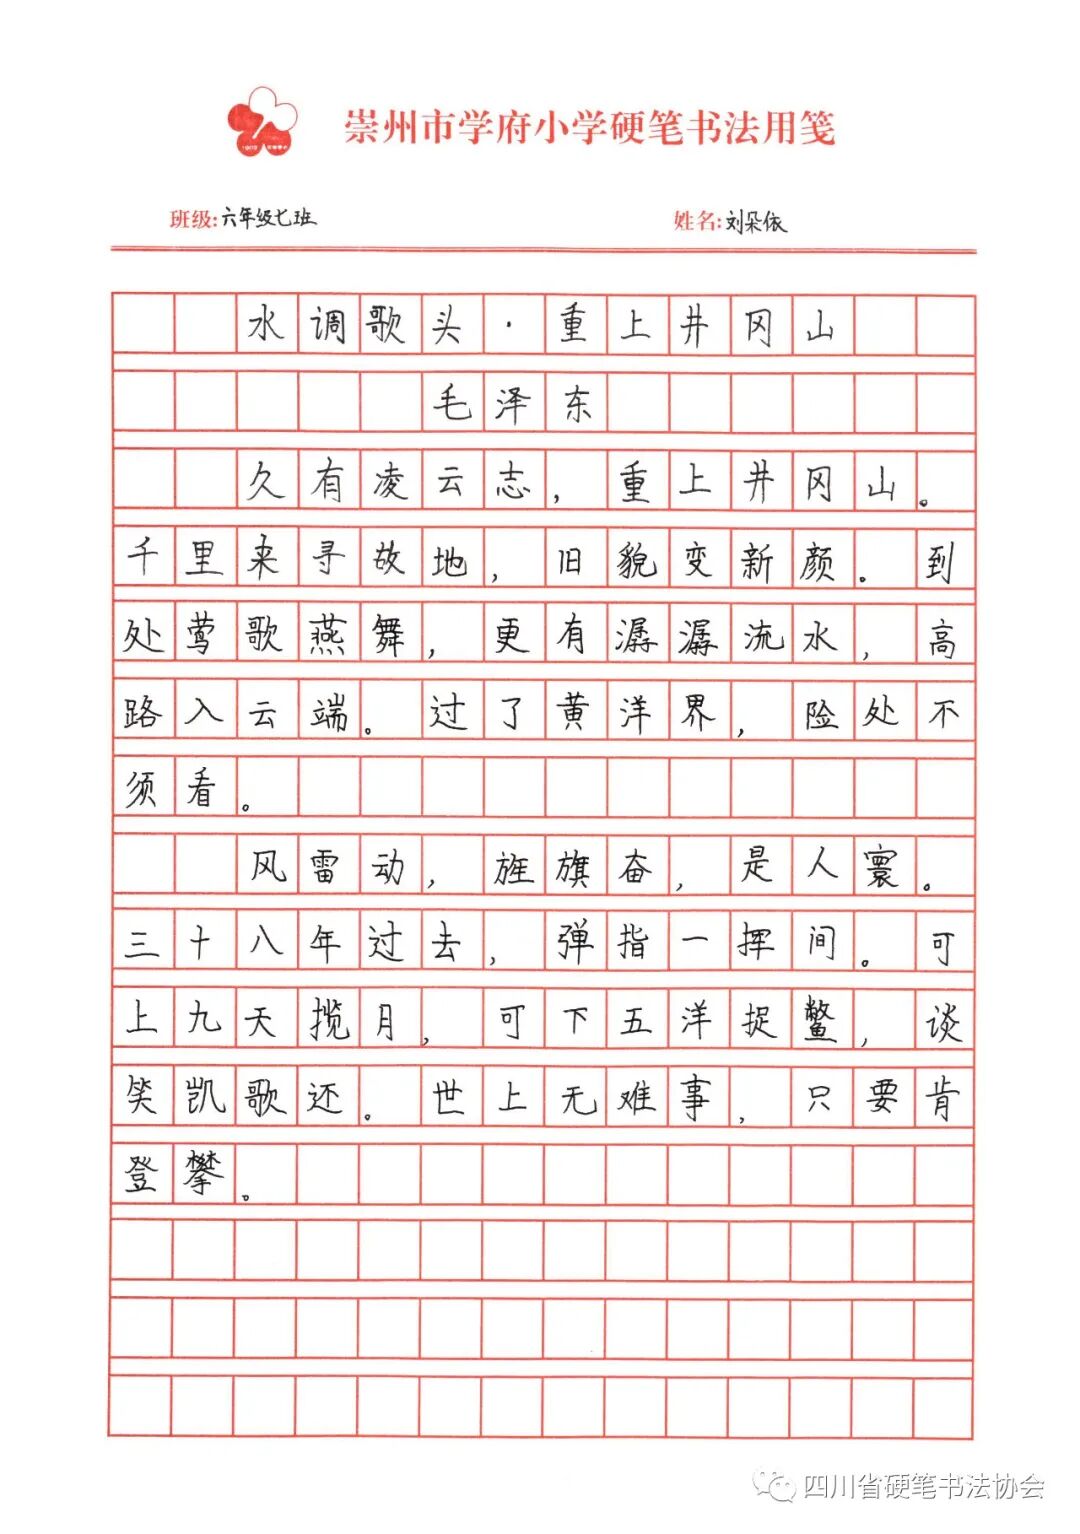 崇州市学府小学硬笔书法用笺
班级:六年级七班 姓名:刘朵依
水调歌头·重上井冈山
毛泽东
久有凌云志，重上井冈山。
千里来寻故地，旧貌变新颜。到
处莺歌燕舞，更有潺潺流水，高
路入云端。过了黄洋界，险处不
须看。
风雷动，旌旗奋，是人寰。
三十八年过去，弹指一挥间。可
上九天揽月，可下五洋捉鳖，谈
笑凯歌还。世上无难事，只要肯
登攀。
四川省硬笔书法协会